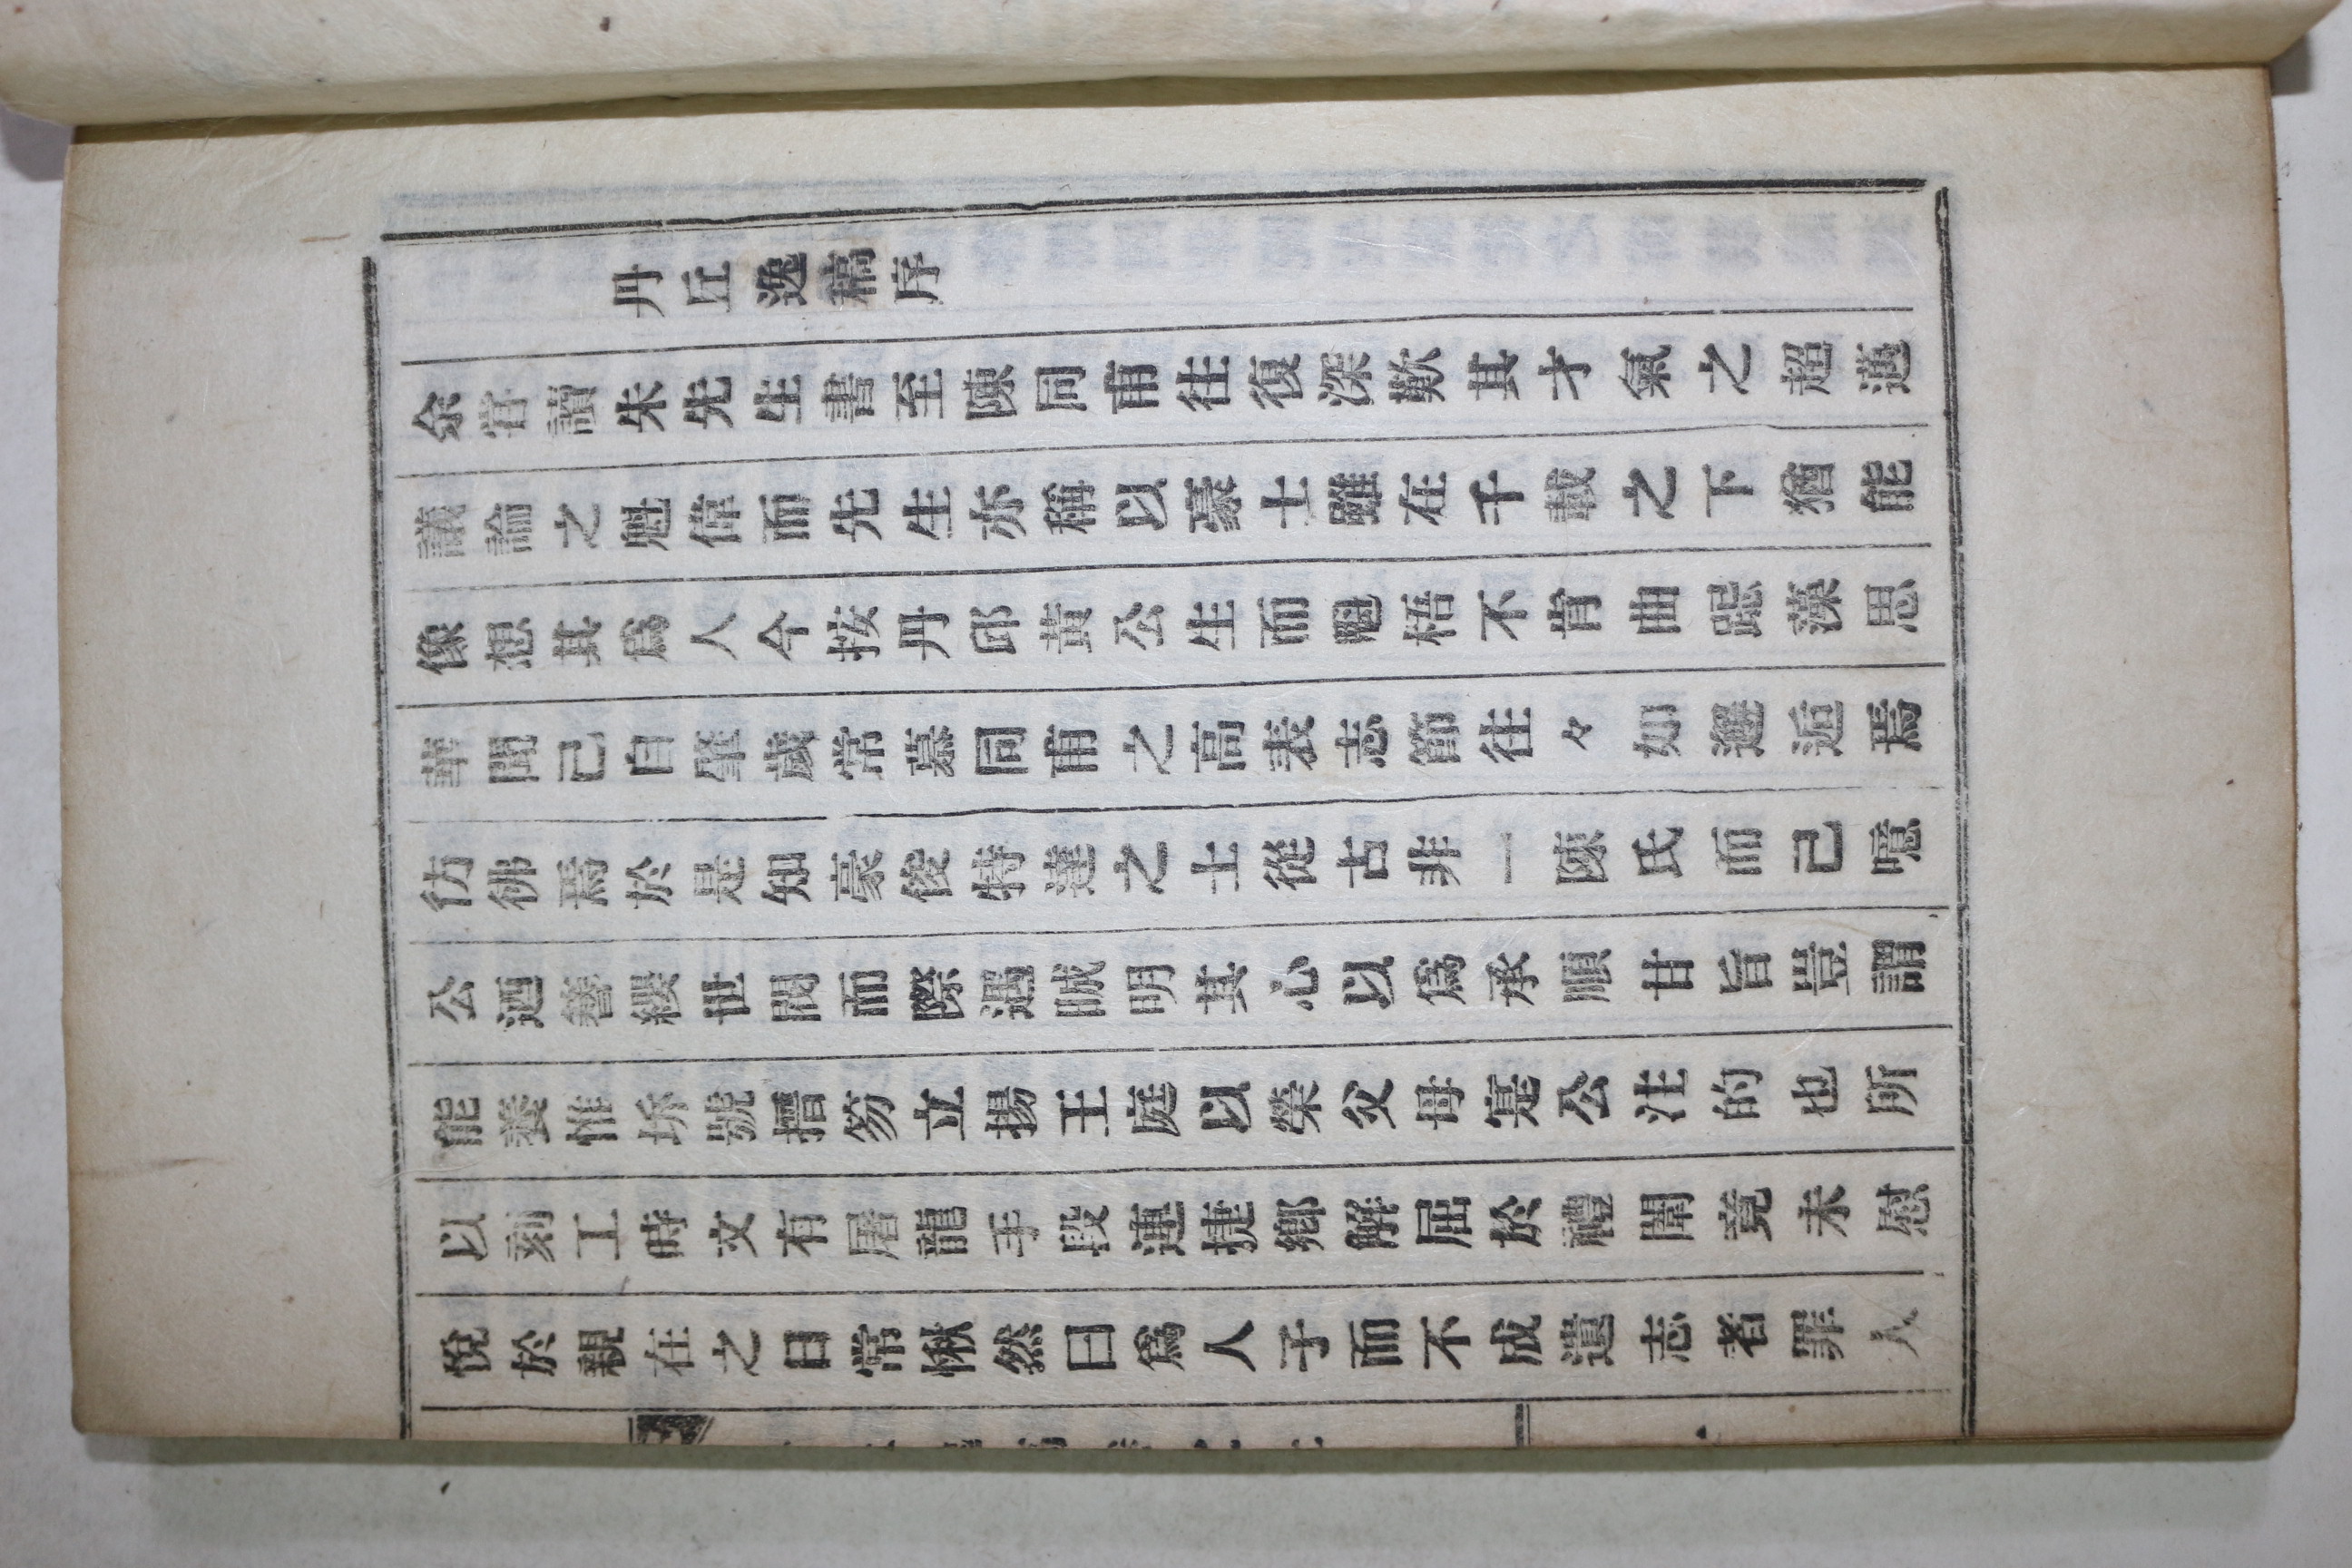 丹丘逸稿序
余嘗讀朱先生書至陳同甫往復深歎其才氣之超邁
議論之魁偉而先生亦稱以豪士雖在千載之下猶能
像想其爲人今按丹邱黃公生而魁梧不肯曲跽藻思
華聞已自髫歲常慕同甫之高表志節往々如邂逅焉
彷彿焉於是知豪俊特達之士從古非一陳氏而已噫
公迺簪纓世閥而際遇晠明其心以爲承順甘旨豈謂
能養惟圻號搢笏立揚王庭以榮父母寔公注的也所
以刻工時文有屠龍手段連捷鄉解屈於禮闈竟未慰
悅於親在之日常愀然曰爲人子而不成遺志者罪人